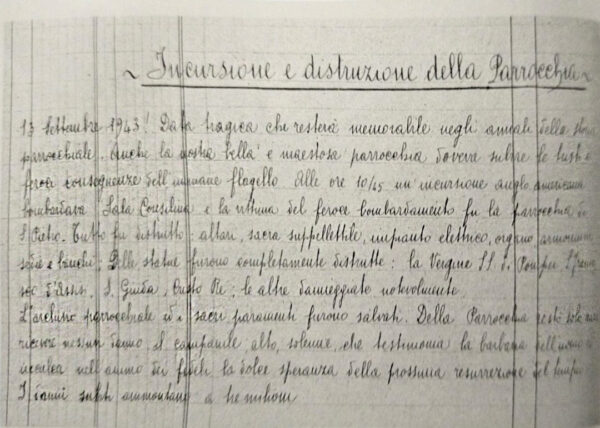 ~ Incursione e distruzione della Parrocchia ~
13 Settembre 1943! Data tragica che resterà memorabile negli annali della storia
parrocchiale. Anche la nostra bella e maestosa parrocchia doveva subire le tristi e
feroci conseguenze dell'immane flagello. Alle ore 10/45 un'incursione anglo americana
bombardava Sala Consilina e la vittima del feroce bombardamento fu la parrocchia di
S. Pietro. Tutto fu distrutto: altari, sacra suppellettile, impianto elettrico, organo, armonium
sedie e banchi. Delle statue furono completamente distrutte: la Vergine SS. di Pompei, S. France
sco d'Assisi, S. Guida, Cristo Re; le altre danneggiate notevolmente.
L'archivio parrocchiale ed i sacri paramenti furono salvati. Della Parrocchia restò solo
ricevere nessun danno il campanile alto, solenne, che testimonia la barbarie dell'uomo e
inculca nell'animo dei fedeli la dolce speranza della prossima resurrezione del tempio
I danni subiti ammontano a tre milioni